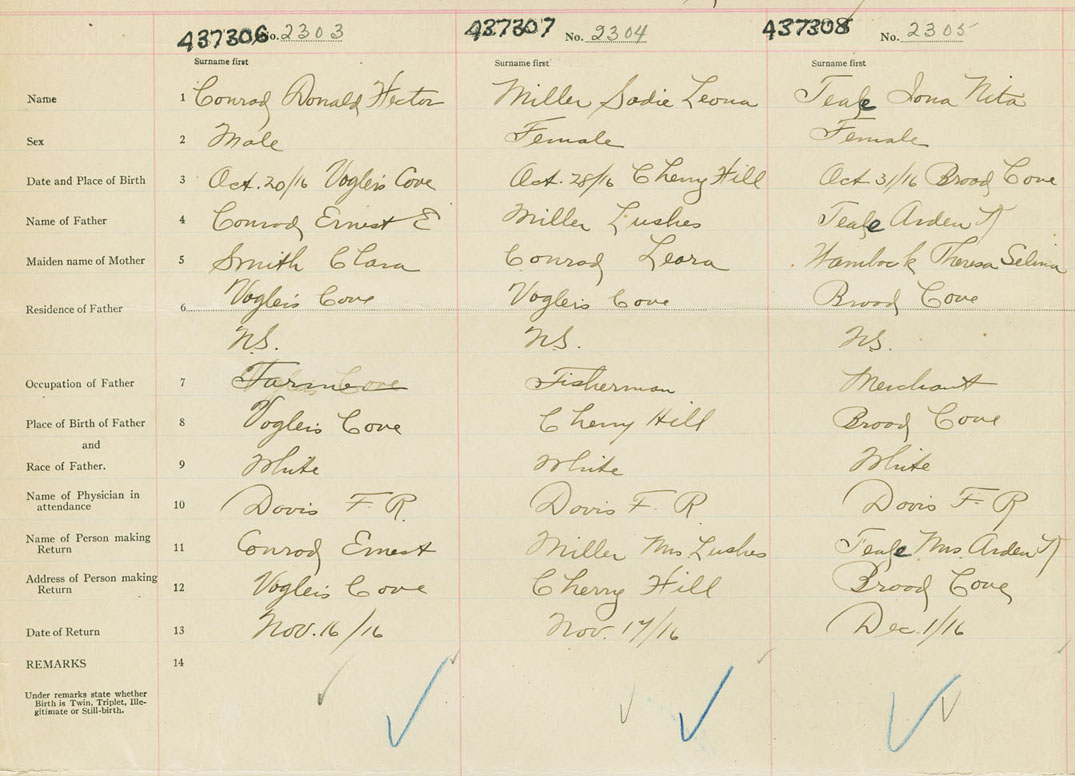 437306 No. 2303 437307 No. 2304 437308 No. 2305
Surname first Surname first Surname first
Name 1 Conrad Donald Hector Miller Sadie Leona Teale Iona Nita
Sex 2 Male Female Female
Date and Place of Birth 3 Oct. 20/16 Voglers Cove Oct. 28/16 Cherry Hill Oct 31/16 Broad Cove
Name of Father 4 Conrad Ernest E Miller Lushes Teale Arden
Maiden name of Mother 5 Smith Clara Conrad Leora Wambock Theresa Selina
Residence of Father 6 Voglers Cove Voglers Cove Broad Cove
N.S. N.S. N.S.
Occupation of Father 7 Farmer Fisherman Merchant
Place of Birth of Father 8 Voglers Cove Cherry Hill Broad Cove
and
Race of Father. 9 White White White
Name of Physician in attendance 10 Davis F. R. Davis F. R Davis F R
Name of Person making Return 11 Conrad Ernest Miller Mrs Lushes Teale Mrs. Arden
Address of Person making Return 12 Voglers Cove Cherry Hill Broad Cove
Date of Return 13 Nov. 16/16 Nov. 17/16 Dec. 1/16
REMARKS 14
Under remarks state whether
Birth is Twin, Triplet, Ille-
gitimate or Still-birth.